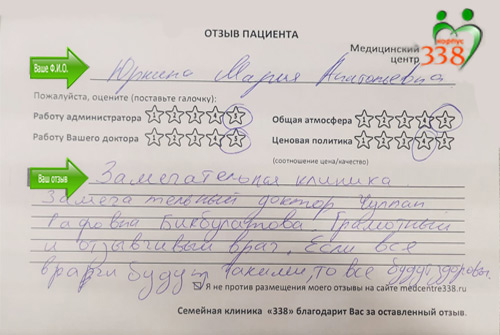 ОТЗЫВ ПАЦИЕНТА
Медицинский центр
корпус
338
Ваше Ф.И.О.
Юркина Мария Анатольевна
Пожалуйста, оцените (поставьте галочку):
Работу администратора 1 2 3 4 5
Общая атмосфера 1 2 3 4 5
Работу Вашего доктора 1 2 3 4 5
Ценовая политика 1 2 3 4 5
(соотношение цена/качество)
Ваш отзыв
Замечательная клиника.
Замечательный доктор Чулпан
Рафовна Бикбулатова. Грамотный
и отзывчивый врач. Если все
врачи будут такими, то все будут здоровы.
Я не против размещения моего отзывы на сайте medcentre338.ru
Семейная клиника «338» благодарит Вас за оставленный отзыв.